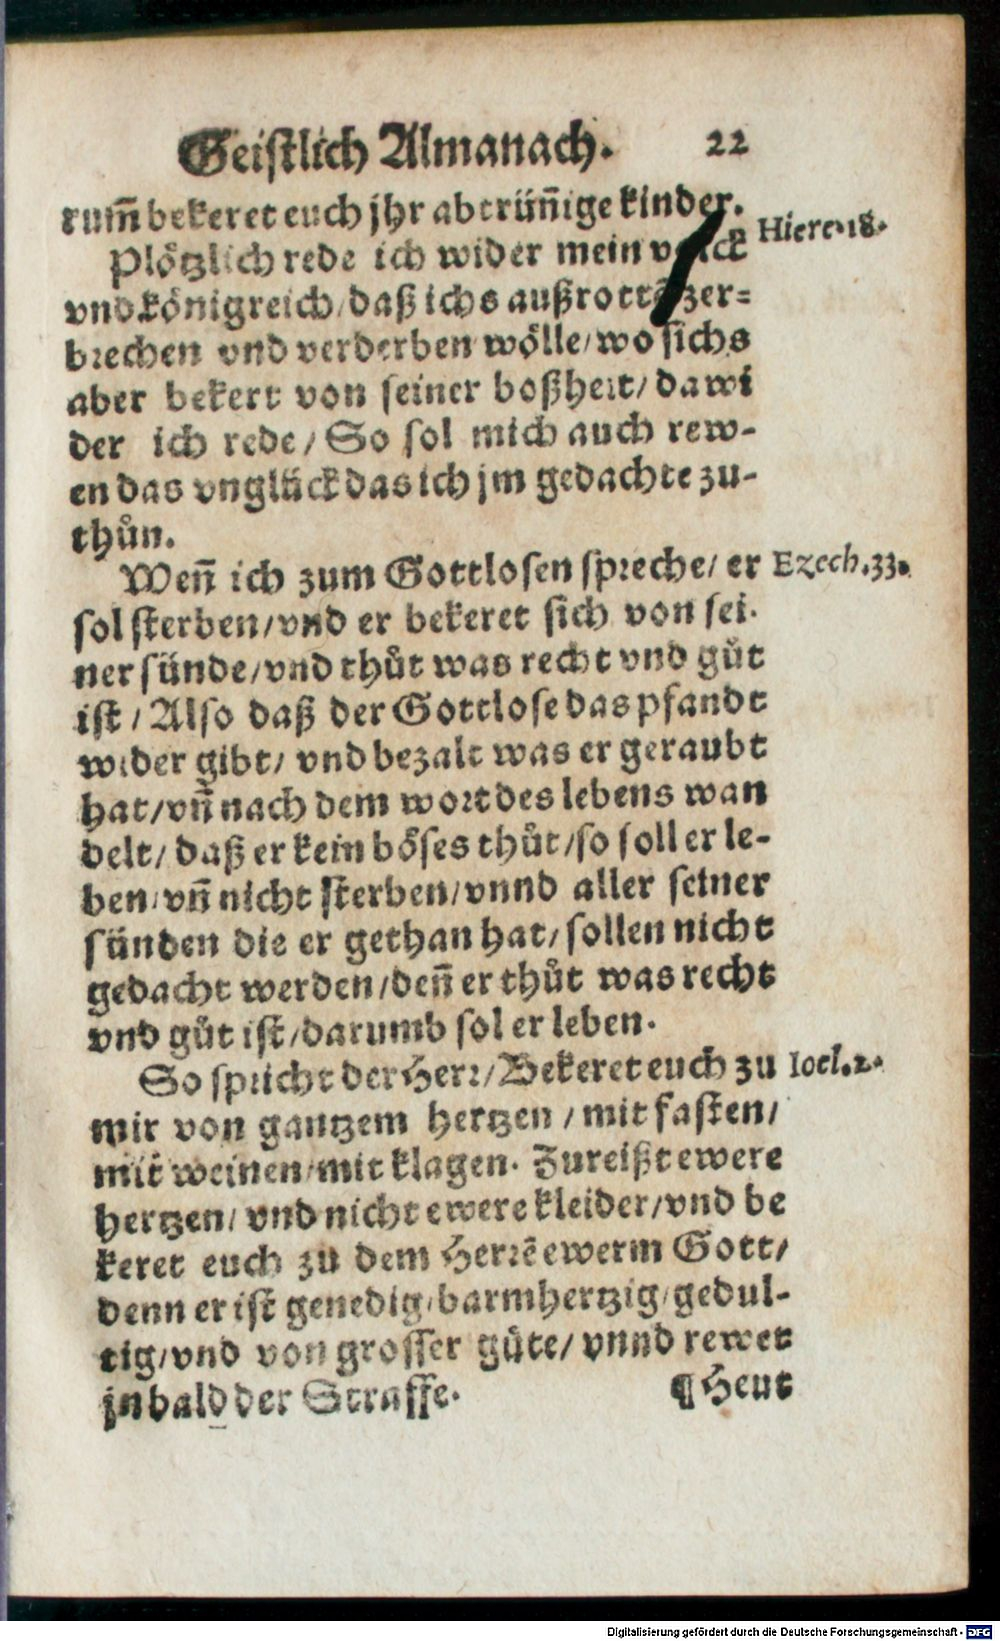 Geistlich Almanach. 22
rum̃ bekeret euch jhr abtrüñige kinder.
Plötzlich rede ich wider mein volck Hiere.18.
vnd königreich/ daß ichs außrottē zer=
brechen vnd verderben wölle/ wo sichs
aber bekert von seiner boßheit/ da wi
der ich rede/ So sol mich auch rew-
en das vnglück das ich jm gedachte zu-
thůn.
Weñ ich zum Gottlosen spreche/ er Ezech.33.
sol sterben/ vnd er bekeret sich von sei-
ner sünde/ vnd thůt was recht vnd gůt
ist/ Also daß der Gottlose das pfandt
wider gibt/ vnd bezalt was er geraubt
hat/ vñ nach dem wort des lebens wan
delt/ daß er kein böses thůt/ so soll er le-
ben/ vñ nicht sterben/ vnnd aller seiner
sünden die er gethan hat/ sollen nicht
gedacht werden/ deñ er thůt was recht
vnd gůt ist/ darumb sol er leben.
So spricht der Herr/ Bekeret euch zu Ioel.2.
mir von gantzem hertzen/ mit fasten/
mit weinen/ mit klagen. Zureißt ewere
hertzen/ vnd nicht ewere kleider/ vnd be
keret euch zu dem Herrē ewerm Gott/
denn er ist genedig/ barmhertzig/ gedul-
tig/ vnd von grosser güte/ vnnd rewet
jn bald der Straffe. ¶ Heut
Digitalisierung gefördert durch die Deutsche Forschungsgemeinschaft - DFG